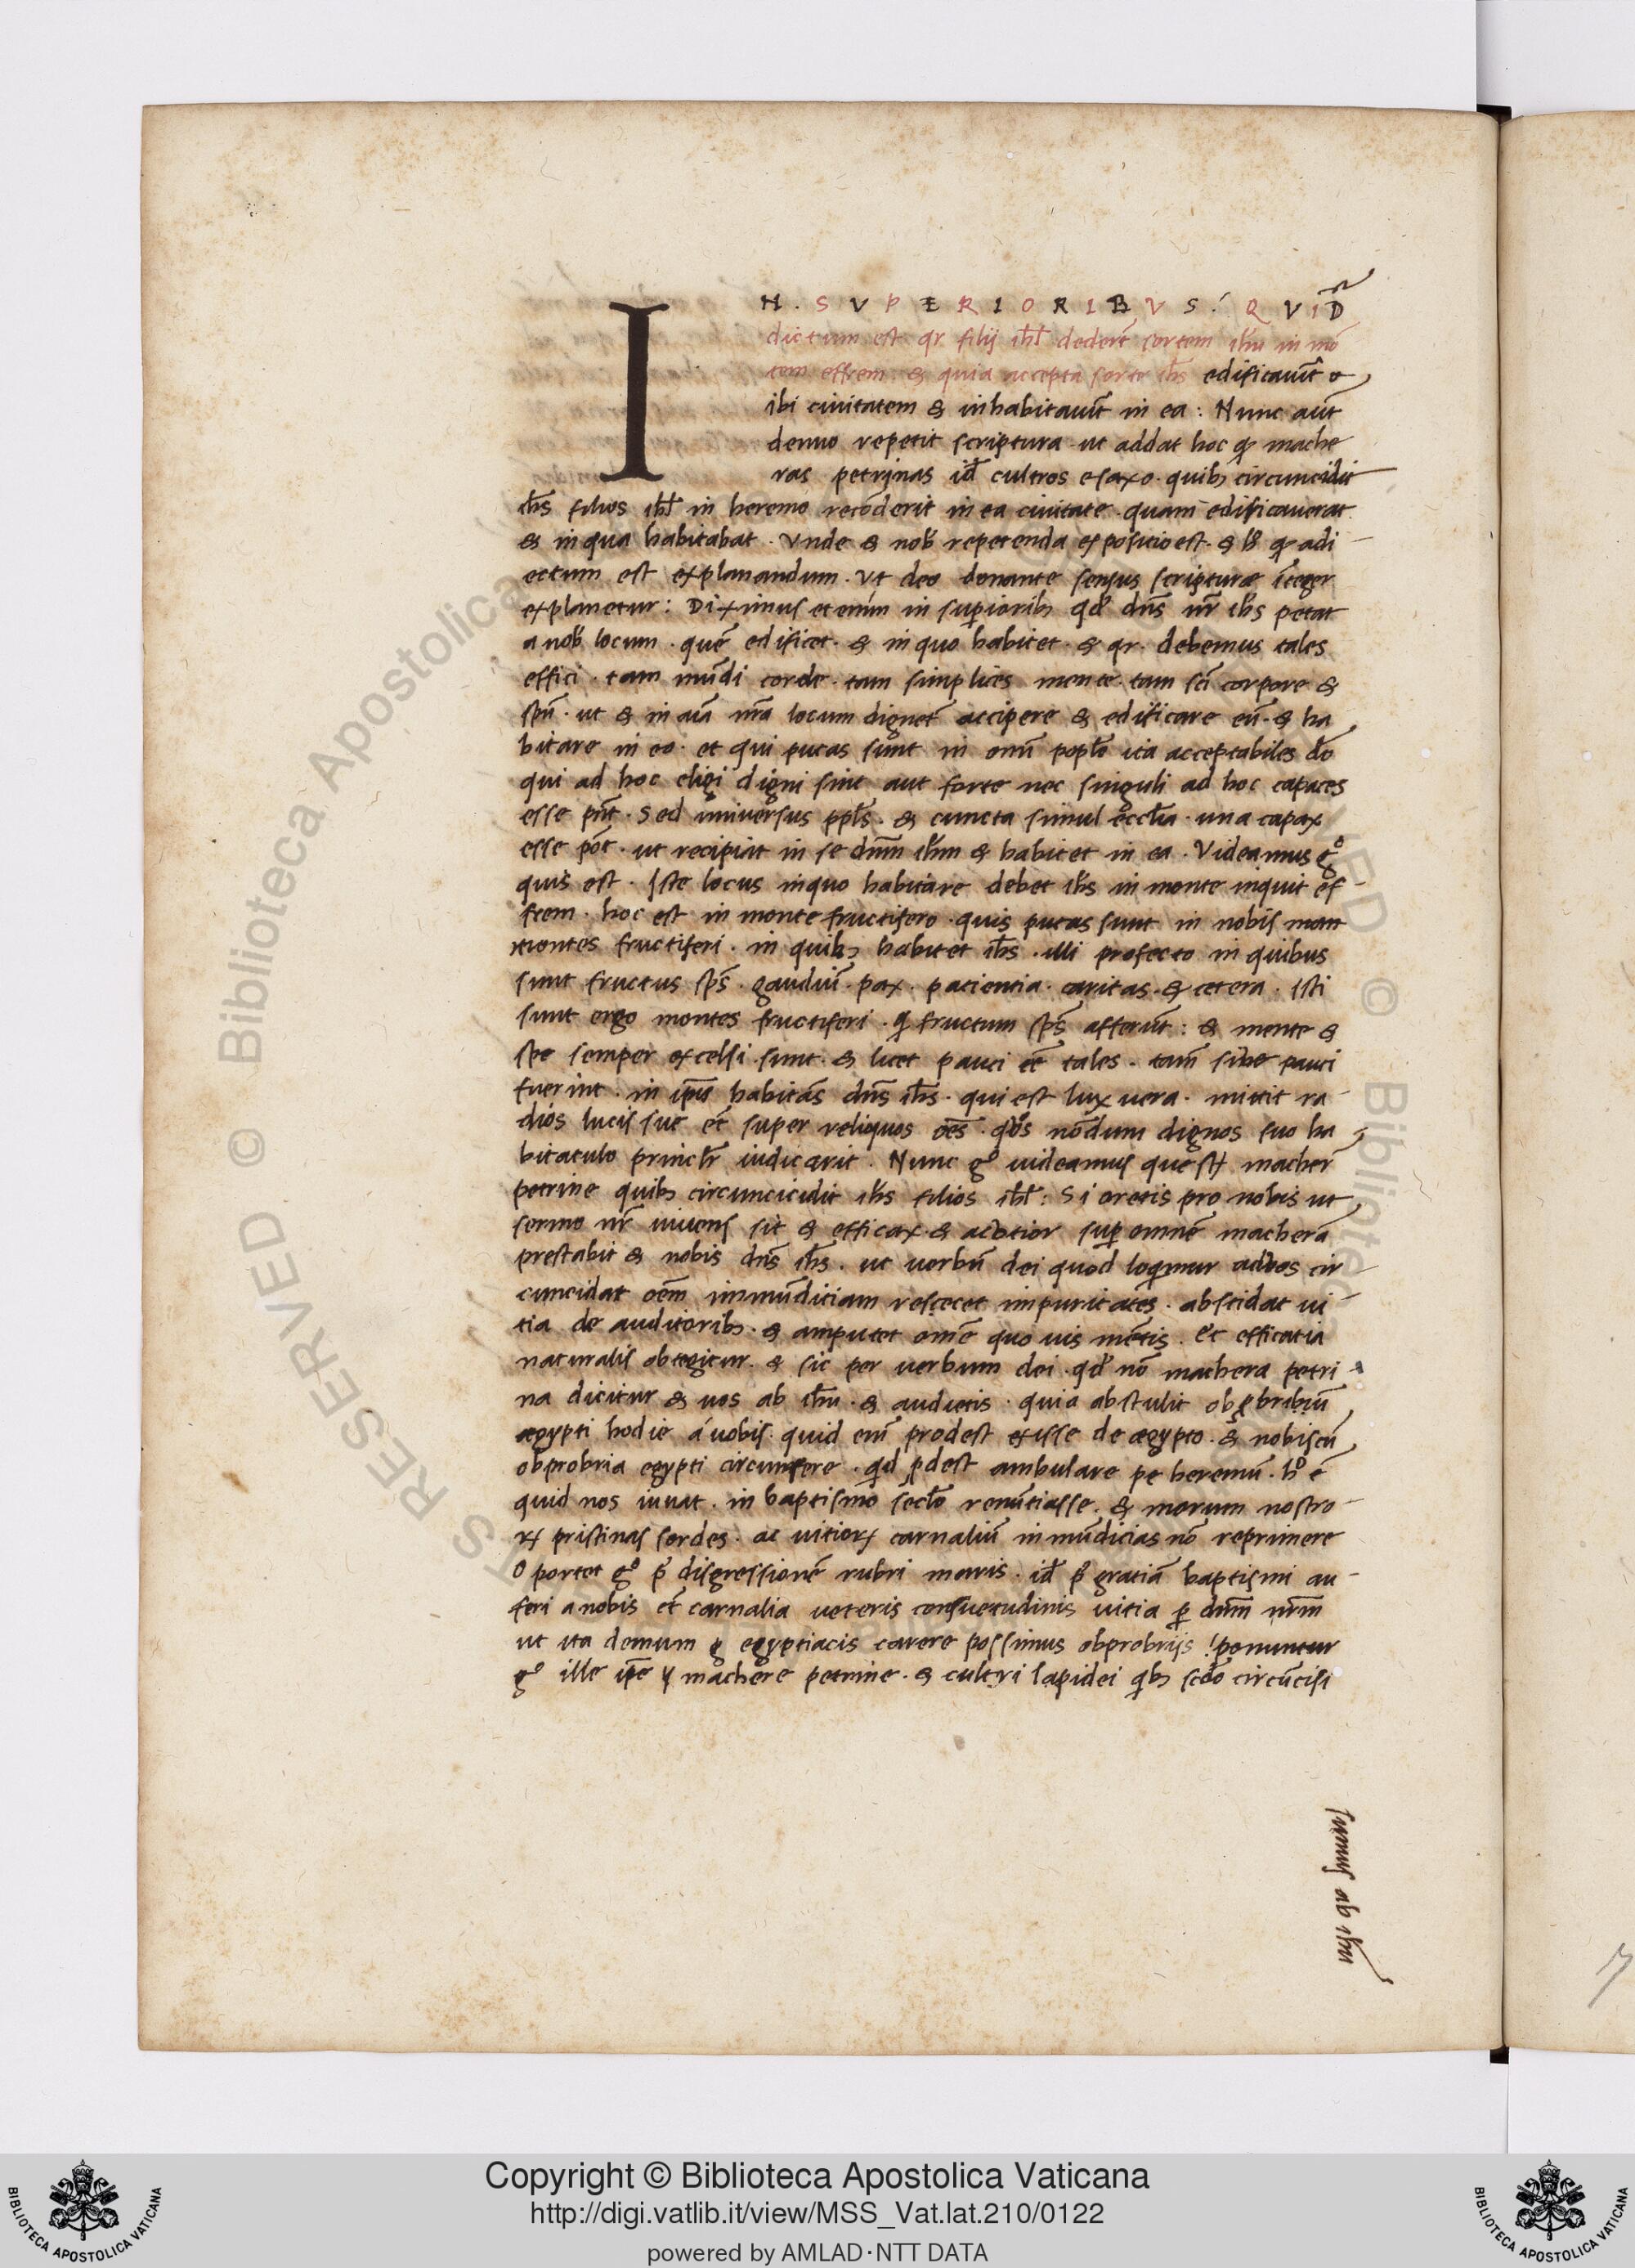 IN. SVPERIORIBVS: QVID
dictum est qr filij ihl dederūt sortem ihu in mō
tem effrem. & quia accepta sorte ihs edificauit
ibi ciuitatem & inhabitauit in ea: Nunc aūt
denuo repetit scriptura ut addat hoc ꝙ mache
ras petrinas id cultros e saxo. quibꝫ circuncidit
ihs filios ihl in heremo recōderit in ea ciuitate. quam edificauerat
& in qua habitabat. Vnde & nob repetenda expositio est. & ꝙ adi-
ectum est explanandum. Vt deo donante sensus scripturæ īteger
explanetur: Diximus etenim in supioribꝫ qđ dn̄s nr̄ ihs petat
a nob locum. quē edificet. & in quo habitet. & qr. debemus tales
effici. tam mūdi corde. tam simplices mente. tam sci corpore &
spū. ut & in aīa nr̄a locum dignet accipere & edificare eū. & ha
bitare in eo. et qui putas sunt in omī poplo ita acceptabiles dō
qui ad hoc eligi digni sint aut forte nec singuli ad hoc capaces
esse pn̄t. Sed uniuersus ppl̄s. & cuncta simul eccl̄ia. una capax
esse pōt. ut recipiat in se dn̄m ihm & habitet in ea. Videamus gº
quis est. Iste locus inquo habitare debet ihs in monte inquit ef-
frem. hoc est in monte fructifero. quis putas sunt in nobis mon
montes fructiferi. in quibꝫ habitet ihs. illi profecto in quibus
sunt fructus sp̄s. gaudiū. pax. patientia. caritas. & cetera. Isti
sunt ergo montes fructiferi. q fructum sp̄s afferūt: & mente &
spe semper excelsi sunt. & licet pauci tales. tam̄ siue pauci
fuerint. in ip̄is habitās dn̄s ihs. qui est lux uera. mittit ra-
dios lucis sue et̄ super reliquos oēs. qos nōdum dignos suo ha
bitaculo iudicarit. Nunc gº uideamus que st macher
petrine quibꝫ circuncicidit ihs filios ihl: Si oretis pro nobis ut
sermo nr̄ uiuens sit & efficax & acutior sup omnē macherā
prestabit & nobis dn̄s ihs. ut uerbū dei quod loqimur ad uos cir-
cuncidat oēm immūditiam resecet impuritates. abscidat ui-
tia de auditoribꝫ. & amputet omē quo uis mētis. Et efficatia
naturalis obtegitur. & sic per uerbum dei. qđ nō machera petri-
na dicitur & uos ab ihu. & audietis. quia abstulit obꝓbribiū
ægypti hodie á uobis. quid eni prodest exisse de ægypto. & nobiscū
obprobria egypti circumfere. qd ꝓdest ambulare pe heremū. hº ē
quid nos iuuat. in baptismo seclo renūtiasse. & morum nostro-
rꝝ pristinas sordes. ac uitiorꝝ carnaliū inmūdicias nō reprimere
Oportet gº p disgressionē rubri maris. id p gratiā baptismi au-
feri a nobis et̄ carnalia ueteris consuetudinis uitia ꝑ dn̄m nr̄m
ut ita demum egyptiacis carere possimus obprobrijs! ponuntur
gº ille ip̄e machere petrine. & cultri lapidei qibꝫ scdo circūcisi
sumus ab ihu
Copyright © Biblioteca Apostolica Vaticana
http://digi.vatlib.it/view/MSS_Vat.lat.210/0122
powered by AMLAD·NTT DATA
BIBLIOTECA APOSTOLICA VATICANA
BIBLIOTECA APOSTOLICA VATICANA